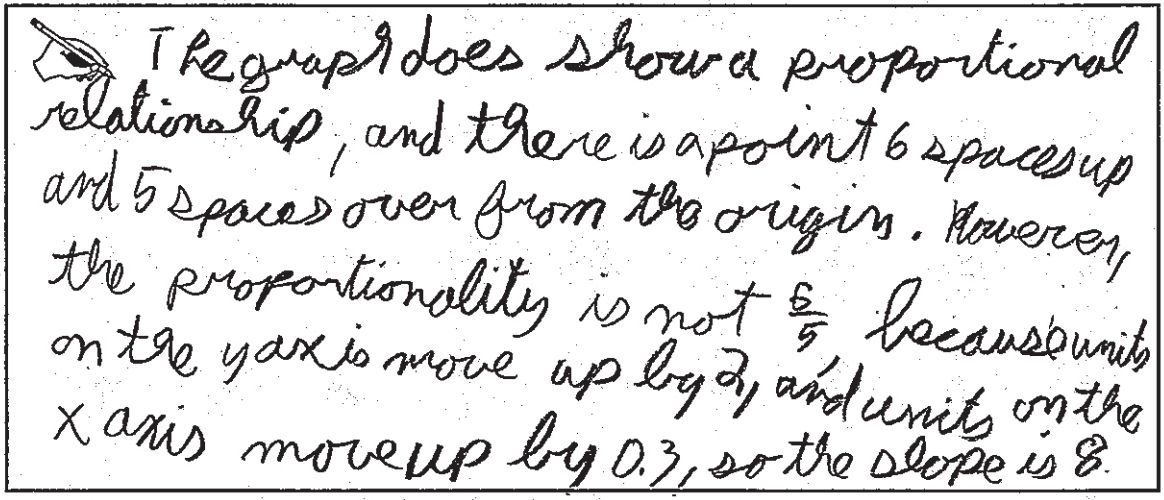 The graph does show a proportional
relationship, and there is a point 6 spaces up
and 5 spaces over from the origin. However,
the proportionality is not 6/5, because units
on the y axis move up by 2, and units on the
x axis move up by 0.3, so the slope is 8.